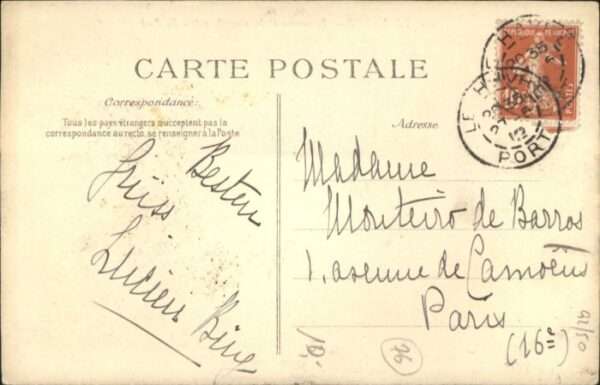 CARTE POSTALE
Correspondance:
Tous les pays étrangers n'acceptent pas la
correspondance au recto, se renseigner à la Poste
Besten
Grüss
Lucien Bing
Adresse
Madame
Monteiro de Barros
1, avenue de Camoëns
Paris
(16e)
LE HAVRE
PORT
10,-
76